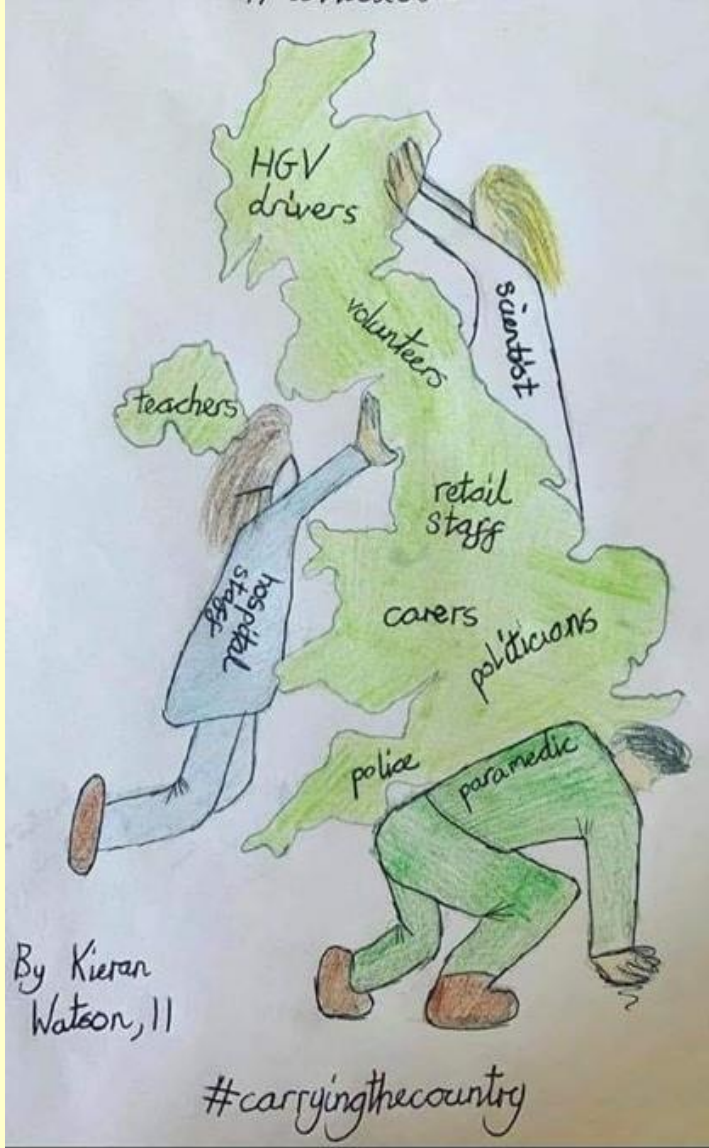 HGV
drivers
volunteers
scientist
teachers
retail
staff
hospital
staff
carers
politicians
police
paramedic
By Kieran
Watson, 11
#carryingthecountry